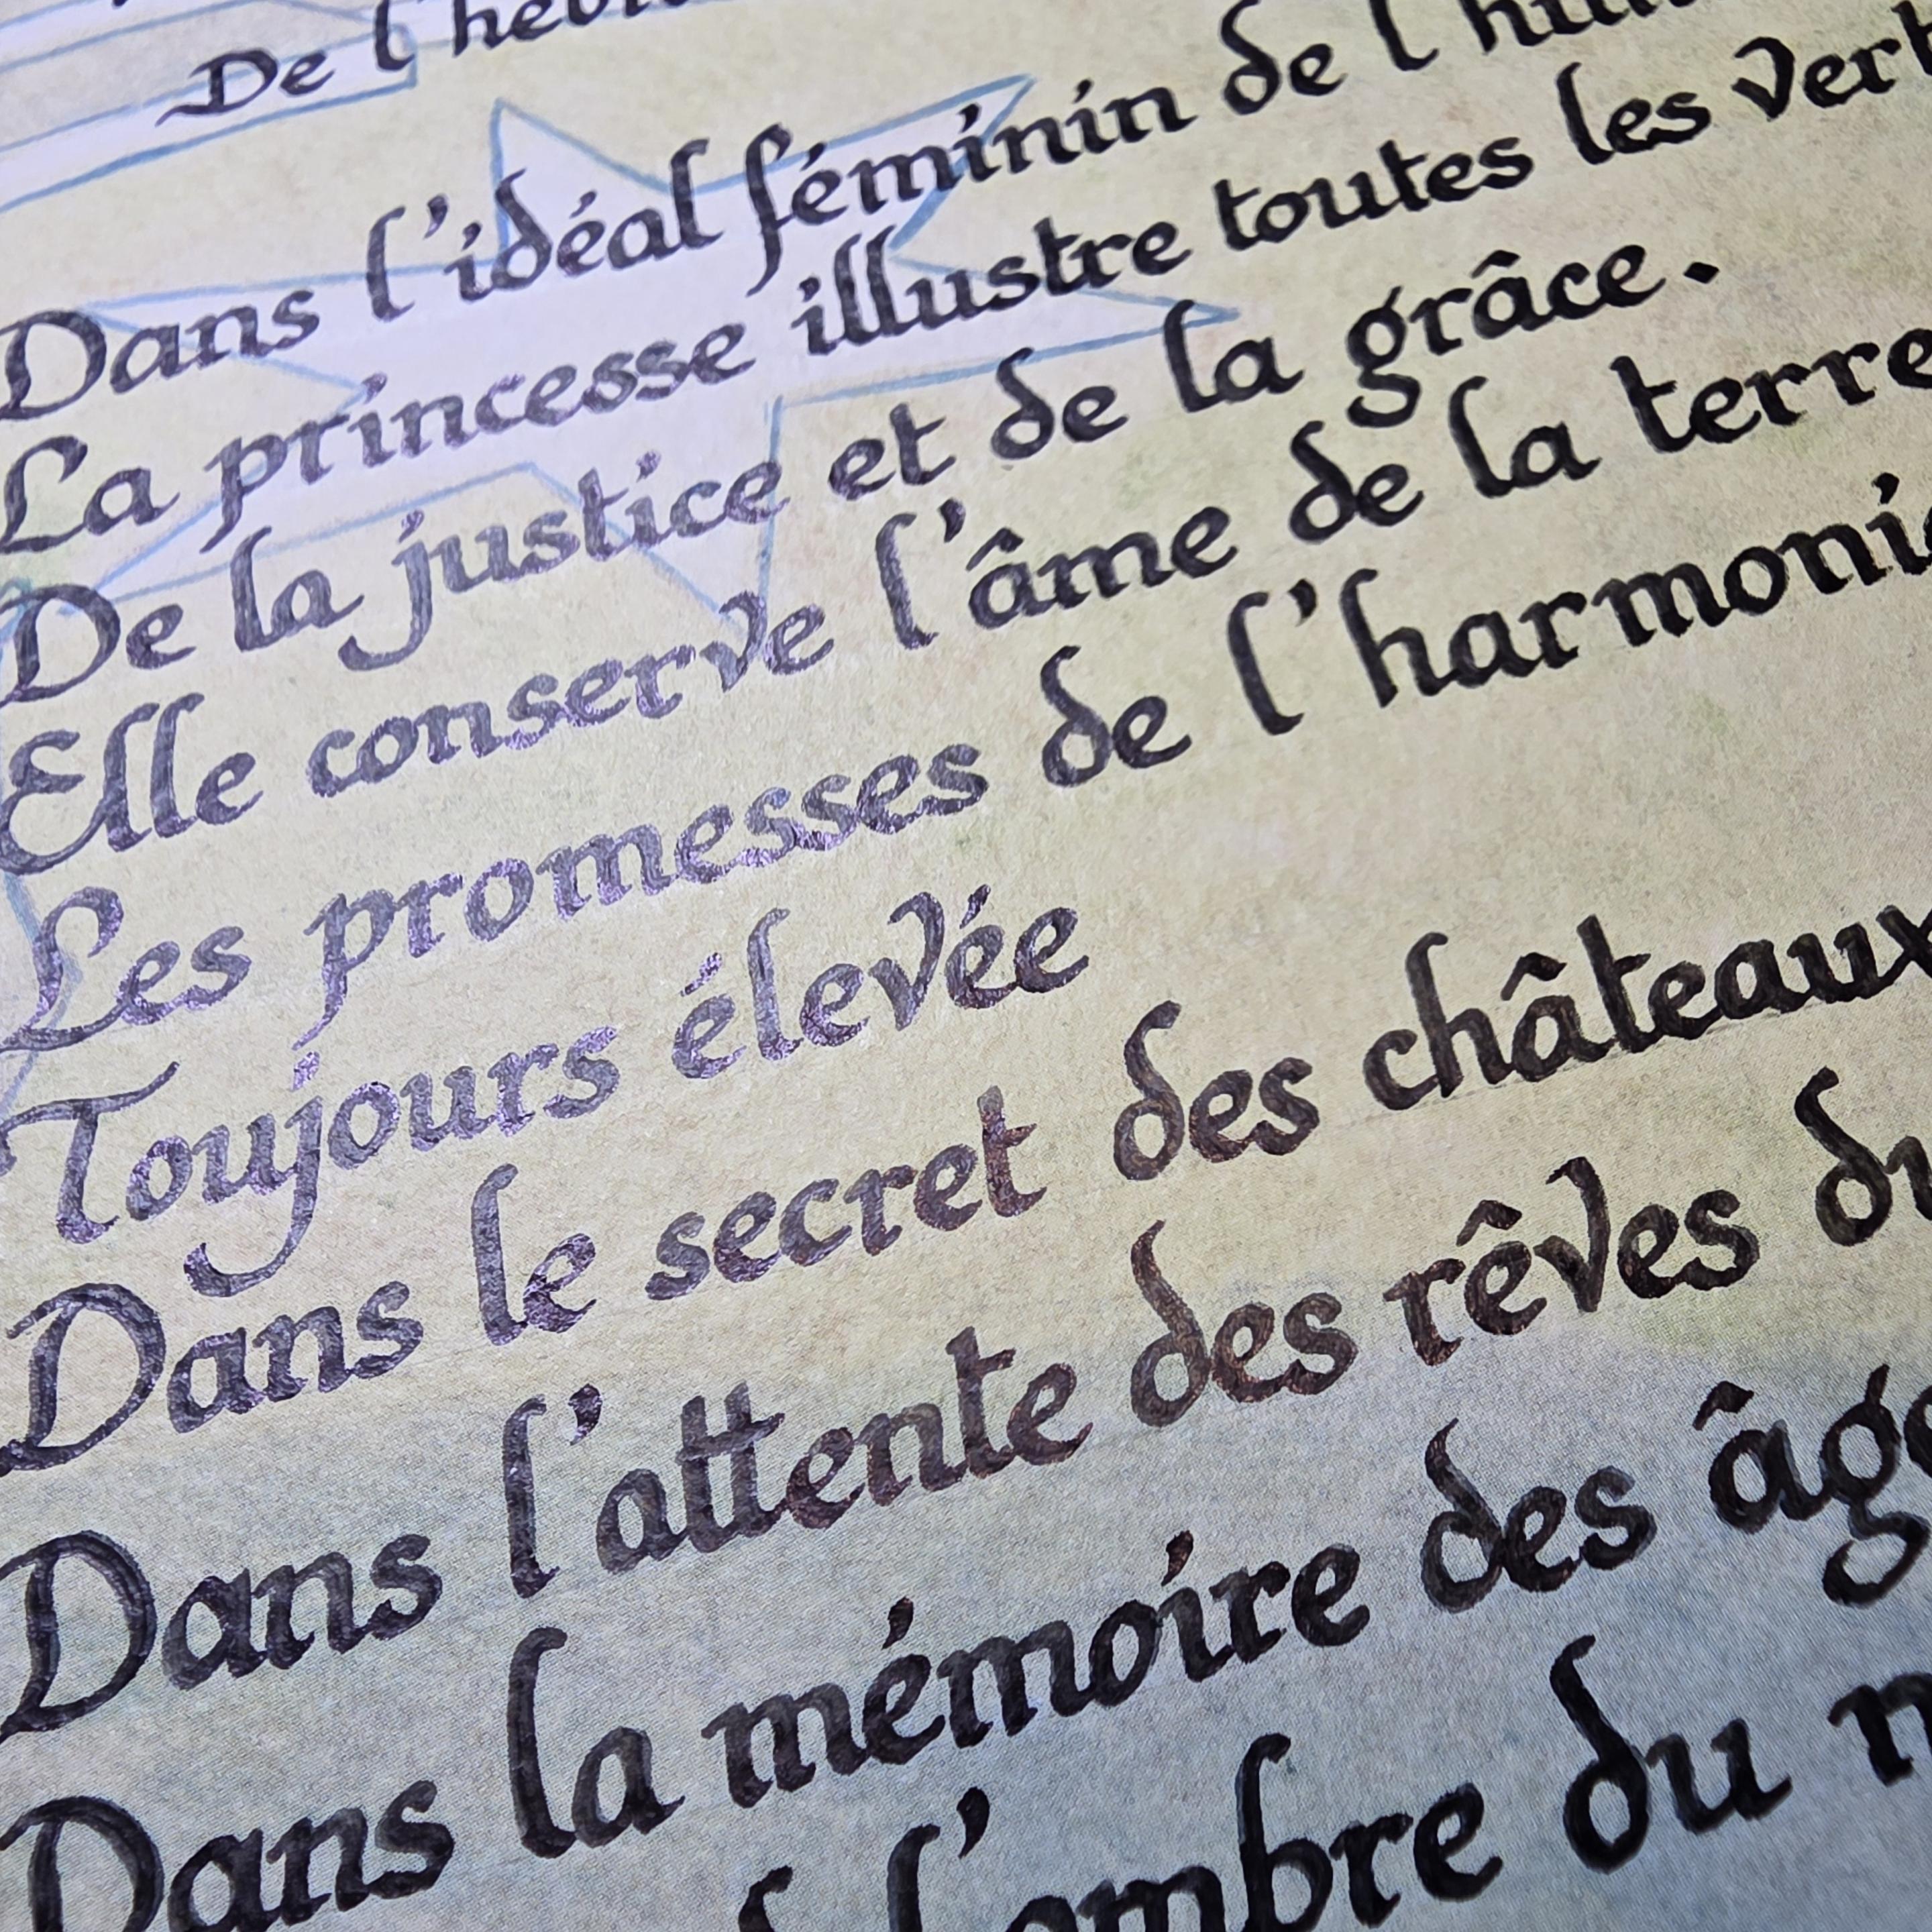 De l'
Dans l'idéal féminin de l'
La princesse illustre toutes les
De la justice et de la grâce.
Elle conserve l'âme de la terre
Les promesses de l'harmonie
Toujours élevée
Dans le secret des châteaux
Dans l'attente des rêves du
Dans la mémoire des
l'ombre du